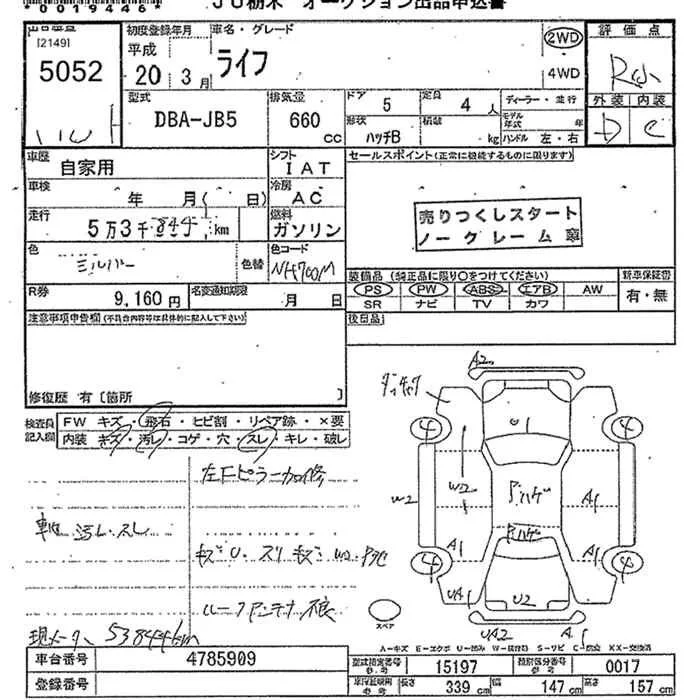 *0019446*
JU栃木 オークション出品申込書
[2149]
5052
初度登録年月
平成
20年 3月
車名・グレード
ライフ
2WD
4WD
評価点
外装 内装
D C
型式
DBA-JB5
排気量
660 CC
ドア 5
定員 4人
形状 ハッチB
積載 kg
ディーラー・並行
モデル年式 年
ハンドル 左・右
車歴 自家用
シフト IAT
セールスポイント(正常に機能するものに限ります)
車検 年 月( 日)
冷房 AC
走行 5万3千844 km
燃料 ガソリン
売りつくしスタート
ノークレーム
色 シルバー
色替
色コード NH700M
装備品(純正品に限り○をつけてください)
PS PW ABS エアB AW
SR ナビ TV カワ
新車保証書
有・無
R券 9,160円
名変通知期限 月 日
注意事項申告欄(不具合内容等は具体的に記入して下さい)
後日品
修復歴 有〔箇所 〕
検査員記入欄
FW キズ・飛石・ヒビ割・リペア跡・×要
内装 キズ・汚レ・コゲ・穴・スレ・キレ・破レ
左Fピラー加修
車内 汚レ・スレ
キズU・スリキズ
ルーフアンテナ
現メータ 53844km
A2
U1
4 4
W2
W2
A1
A1
A1
4 4
UA1
U2
A1
UA2
A1
スペア
A-キズ E-エクボ U-凹み W-補修跡 S-サビ C-腐食 XX-交換済
車台番号 4785909
登録番号
型式指定番号 参考 15197
類別区分番号 参考 0017
車保証明用 参考 長さ 339cm 幅 147cm 高さ 157cm